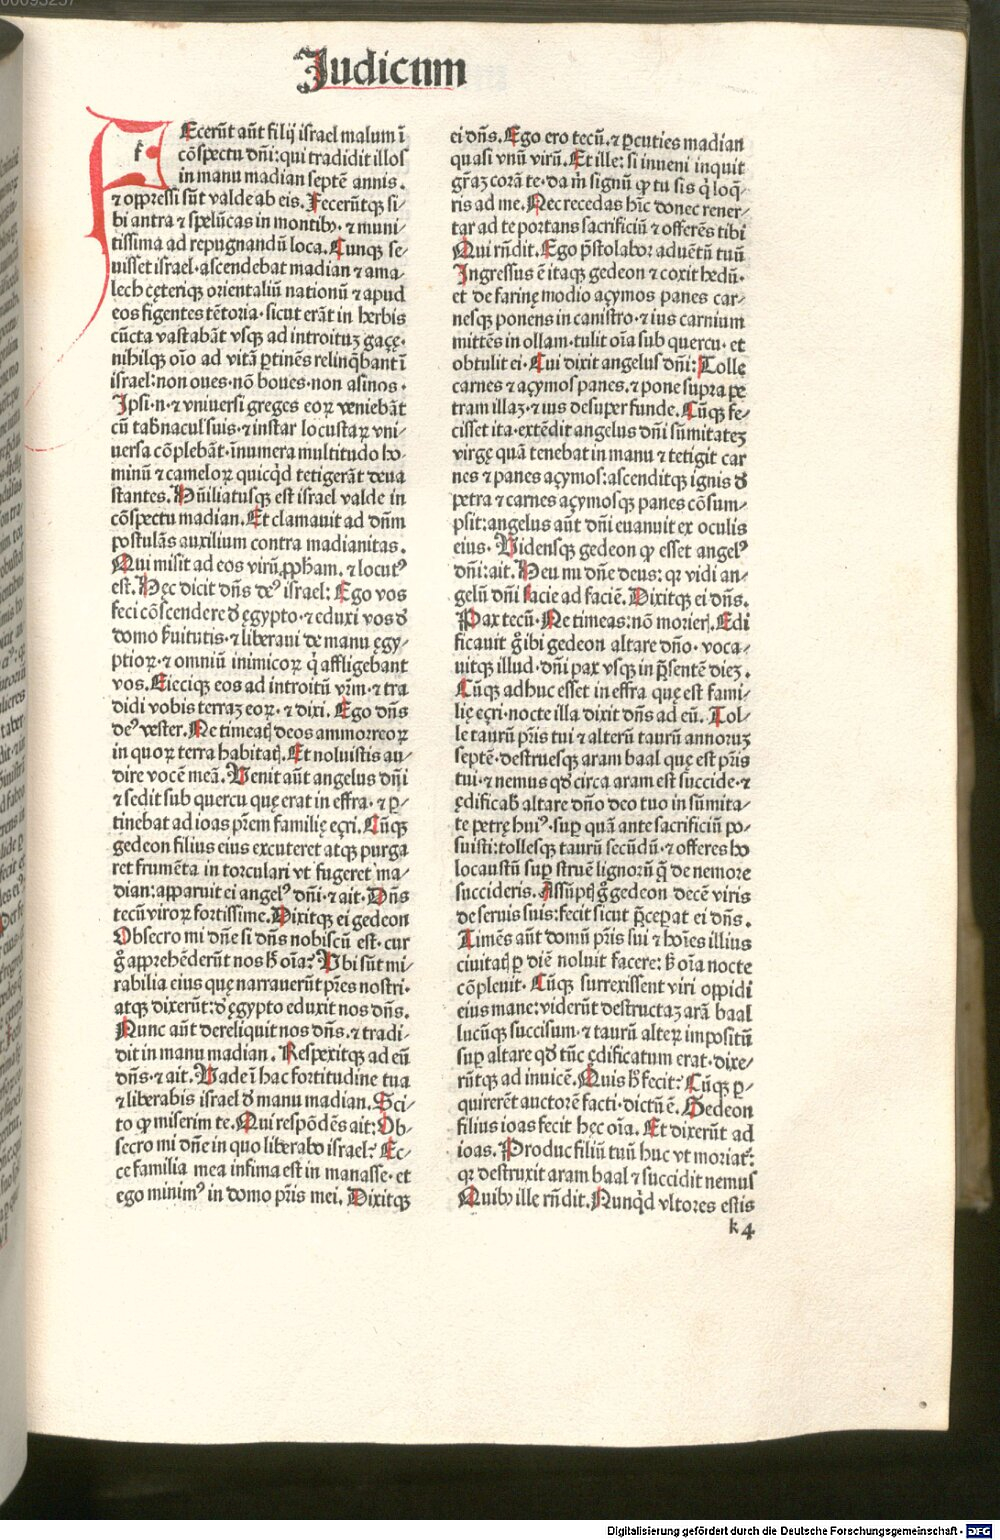 Judicum
FEcerūt aūt filij israel malum ī
cōspectu dñi:qui tradidit illos
in manu madian septē annis.
⁊ oppressi sūt valde ab eis. Fecerūtqꝫ si-
bi antra ⁊ spelūcas in montibꝰ. ⁊ muni-
tissima ad repugnandū loca. Cunqꝫ se-
uisset israel. ascendebat madian ⁊ ama-
lech cęteriqꝫ orientaliū nationū ⁊ apud
eos figentes tētoria. sicut erāt in herbis
cūcta vastabāt vsqꝫ ad introituꝫ gaçę.
nihilqꝫ oīo ad vitā ꝑtinēs relinq̄bant ī
israel:non oues. nō boues. non asinos.
Ipsi .n. ⁊ vniuersi greges eoꝝ veniebāt
cū tab̄nacul' suis. ⁊ instar locustaꝝ vni-
uersa cōplebāt. īnumera multitudo ho-
minū ⁊ cameloꝝ quicq̇d tetigerāt deua
stantes. Hūiliatusqꝫ est israel valde in
cōspectu madian. Et clamauit ad dñm
postulās auxilium contra madianitas.
Qui misit ad eos virū ꝓpham. ⁊ locutꝰ
est. Hęc dicit dñs deꝰ israel: Ego vos
feci cōscendere đ ęgypto. ⁊ eduxi vos đ
domo ſuitutis. ⁊ liberaui de manu ęgy-
ptioꝝ. ⁊ omniū inimicoꝝ q̇ affligebant
vos. Eieciqꝫ eos ad introitū vr̄m. ⁊ tra
didi vobis terraꝫ eoꝝ. ⁊ dixi. Ego dñs
deꝰ vester. Ne timeatꝭ deos ammorreoꝝ
in quoꝝ terra habitatꝭ. Et noluistis au-
dire vocē meā. Venit aūt angelus dñi
⁊ sedit sub quercu quę erat in effra. ⁊ ꝑ-
tinebat ad ioas pr̄em familię eçri. Cūqꝫ
gedeon filius eius excuteret atqꝫ purga
ret frumēta in torculari vt fugeret ma-
dian:apparuit ei angelꝰ dñi. ⁊ ait. Dñs
tecū viroꝝ fortissime. Dixitqꝫ ei gedeon
Obsecro mi dñe si dñs nobiscū est. cur
g̊ apprehēderūt nos h̄ oīa? Vbi sūt mi-
rabilia eius quę narrauerūt pr̄es nostri.
atqꝫ dixerūt:đ ęgypto eduxit nos dñs.
Nunc aūt dereliquit nos dñs. ⁊ tradi-
dit in manu madian. Respexitqꝫ ad eū
dñs. ⁊ ait. Vade ī hac fortitudine tua
⁊ liberabis israel đ manu madian. Sci-
to ꝙ miserim te. Qui respōdēs ait: Ob-
secro mi dñe in quo liberabo israel? Ec-
ce familia mea infima est in manasse. et
ego minimꝰ in domo pr̄is mei. Dixitqꝫ
ei dñs. Ego ero tecū. ⁊ ꝑcuties madian
quasi vnū virū. Et ille: si inueni inquit
gr̄aꝫ corā te. da m̄ signū ꝙ tu sis q̇ loq̄-
ris ad me. Nec recedas hīc donec reuer-
tar ad te portans sacrificiū ⁊ offerēs tibi
Qui rñdit. Ego p̄stolabor aduētū tuū
Ingressus ē itaqꝫ gedeon ⁊ coxit hedū.
et de farinę modio açymos panes car-
nesqꝫ ponens in canistro. ⁊ ius carnium
mittēs in ollam. tulit oīa sub quercu. et
obtulit ei. Cui dixit angelus dñi: Tolle
carnes ⁊ açymos panes. ⁊ pone supra pe
tram illaꝫ. ⁊ ius desuper funde. Cūqꝫ fe-
cisset ita. extēdit angelus dñi sūmitateꝫ
virgę quā tenebat in manu ⁊ tetigit car
nes ⁊ panes açymos:ascenditqꝫ ignis đ
petra ⁊ carnes açymosqꝫ panes cōsum-
psit:angelus aūt dñi euanuit ex oculis
eius. Vidensqꝫ gedeon ꝙ esset angelꝰ
dñi:ait. Heu mi dñe deus: qꝛ vidi an-
gelū dñi facie ad faciē. Dixitqꝫ ei dñs.
Pax tecū. Ne timeas:nō morierꝭ. Edi
ficauit g̊ ibi gedeon altare dño. voca-
uitqꝫ illud. dñi pax vsqꝫ in p̄sentē dieꝫ.
Cūqꝫ adhuc esset in effra quę est fami-
lię eçri. nocte illa dixit dñs ad eū. Tol-
le taurū pr̄is tui ⁊ alterū taurū annoruꝫ
septē. destruesqꝫ aram baal quę est pr̄is
tui. ⁊ nemus qđ circa aram est succide. ⁊
ędificab̄ altare dño deo tuo in sūmita-
te petrę huiꝰ. suꝑ quā ante sacrificiū po-
suisti:tollesqꝫ taurū secūdū. ⁊ offeres ho
locaustū suꝑ struē lignorū q̄ de nemore
succideris. Assūptꝭ g̊ gedeon decē viris
de seruis suis:fecit sicut p̄ceperat ei dñs.
Timēs aūt domū pr̄is sui ⁊ hoīes illius
ciuitatꝭ ꝑ diē noluit facere: ſꝫ oīa nocte
cōpleuit. Cūqꝫ surrexissent viri oppidi
eius mane:viderūt destructaꝫ arā baal
lucūqꝫ succisum. ⁊ taurū alteꝝ impositū
suꝑ altare qđ tūc ędificatum erat. dixe-
rūtqꝫ ad inuicē. Quis h̄ fecit? Cūqꝫ ꝑ-
quirerēt auctorē facti. dictū ē. Gedeon
filius ioas fecit hęc oīa. Et dixerūt ad
ioas. Produc filiū tuū huc vt moriatᷣ:
qꝛ destruxit aram baal ⁊ succidit nemus
Quibꝰ ille rñdit. Nunq̇d vltores estis
k 4
Digitalisierung gefördert durch die Deutsche Forschungsgemeinschaft - DFG